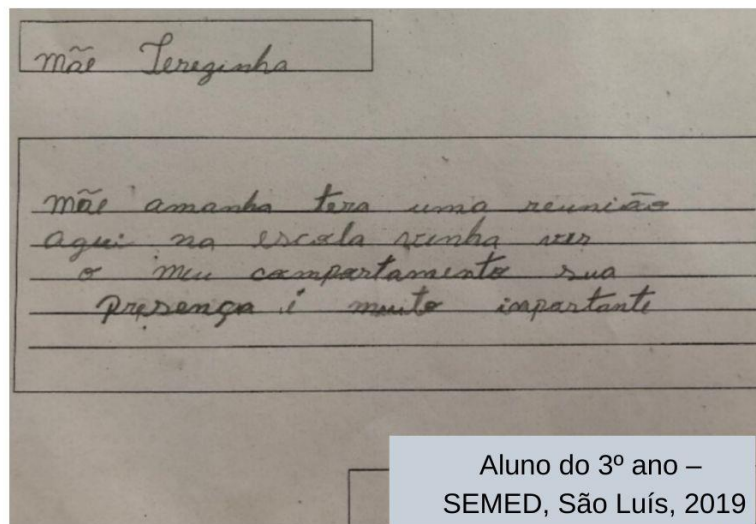 mãe Terezinha
mãe amanha tera uma reunião
aqui na escola venha ver
o meu compartamento sua
presença é muito impartante
Aluno do 3º ano –
SEMED, São Luís, 2019